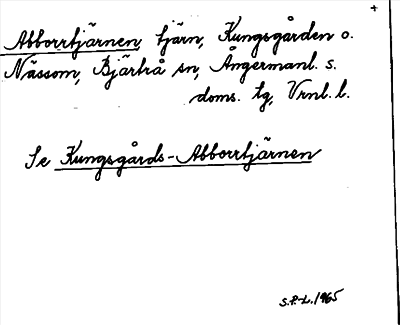 +
Abborrtjärnen tjärn, Kungsgården o.
Nässom, Bjärtrå sn, Ångermanl. s.
doms. tg, Vrnl. l.
Se Kungsgårds-Abborrtjärnen
S.P-L. 1965